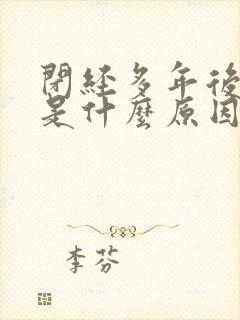 閉経多年後
是什麼原因
李芬